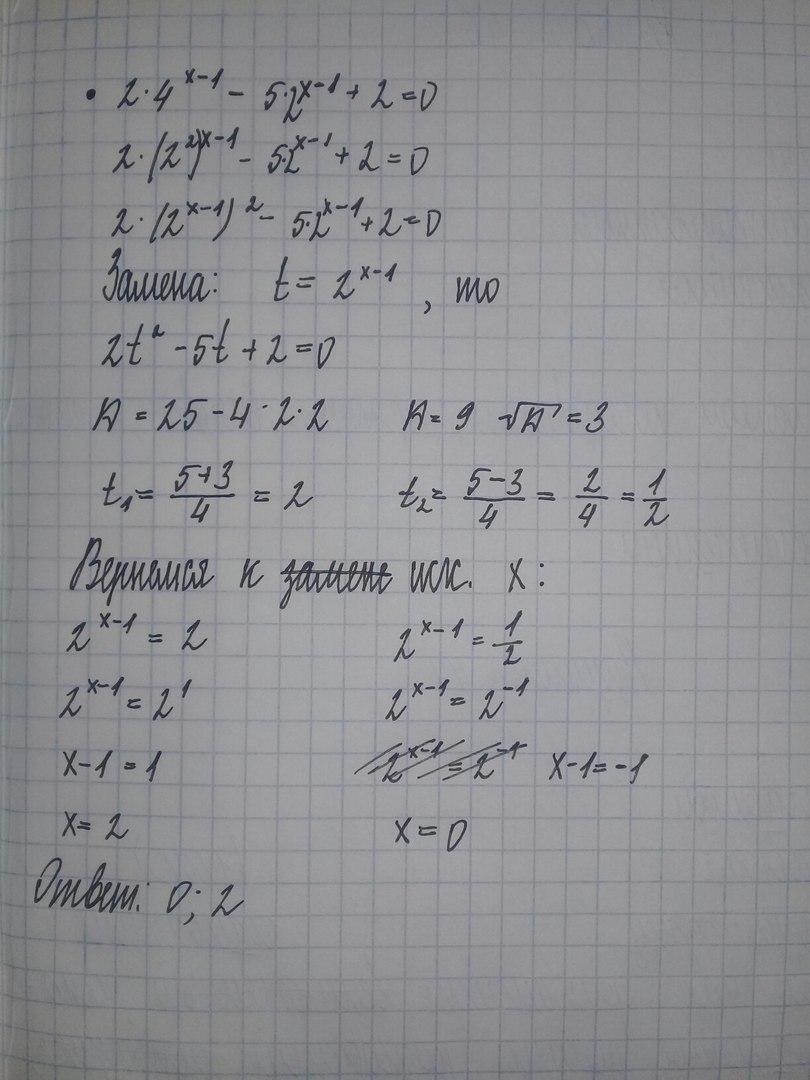 • 2·4^(x-1) - 5·2^(x-1) + 2 = 0
2·(2²)^(x-1) - 5·2^(x-1) + 2 = 0
2·(2^(x-1))² - 5·2^(x-1) + 2 = 0
Замена: t = 2^(x-1), то
2t² - 5t + 2 = 0
D = 25 - 4·2·2 D = 9 √D = 3
t₁ = (5+3)/4 = 2 t₂ = (5-3)/4 = 2/4 = 1/2
Вернемся к замене иск. x:
2^(x-1) = 2 2^(x-1) = 1/2
2^(x-1) = 2^1 2^(x-1) = 2^(-1)
x-1 = 1 2^(x-1) = 2^(-1) x-1 = -1
x = 2 x = 0
Ответ: 0; 2